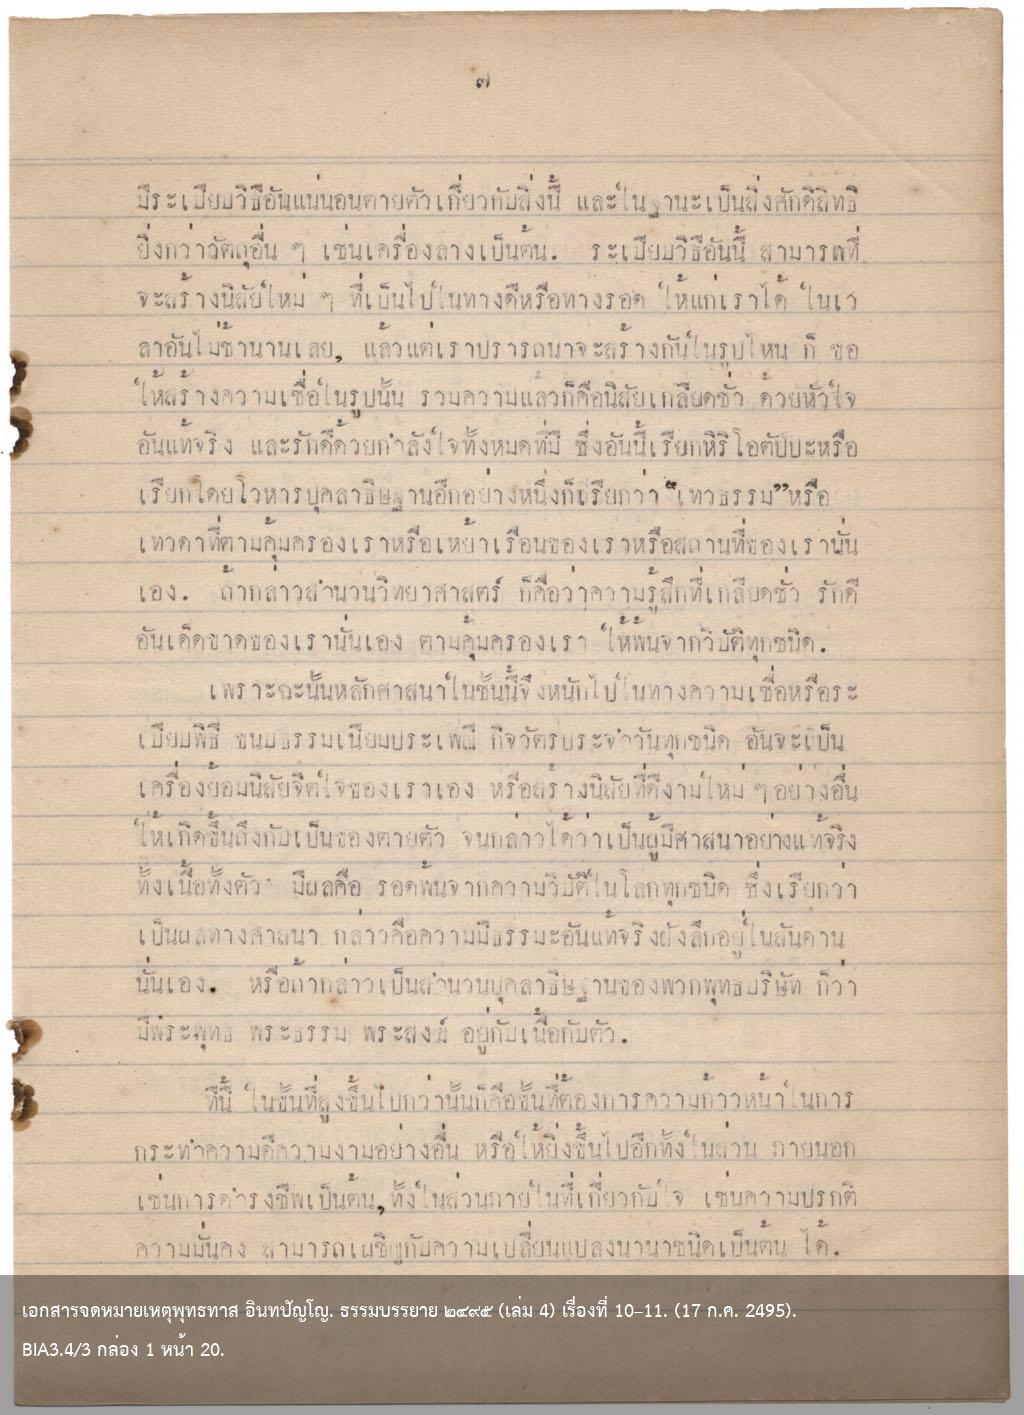 ๗
มีระเบียบวิธีอันแน่นอนตายตัวเกี่ยวกับสิ่งนี้ และในฐานะเป็นสิ่งศักดิ์สิทธิ
ยิ่งกว่าวัตถุอื่น ๆ เช่นเครื่องลางเป็นต้น. ระเบียบวิธีอันนี้ สามารถที่
จะสร้างนิสัยใหม่ ๆ ที่เป็นไปในทางดีหรือทางรอด ให้แก่เราได้ ในเว
ลาอันไม่ช้านานเลย, แล้วแต่เราปรารถนาจะสร้างกันในรูปไหน ก็ ขอ
ให้สร้างความเชื่อในรูปนั้น รวมความแล้วก็คือนิสัยเกลียดชั่ว ด้วยหัวใจ
อันแท้จริง และรักดีด้วยกำลังใจทั้งหมดที่มี ซึ่งอันนี้เรียกหิริโอตัปปะหรือ
เรียกโดยโวหารบุคลาธิษฐานอีกอย่างหนึ่งก็เรียกว่า “เทวธรรม”หรือ
เทวดาที่ตามคุ้มครองเราหรือเหย้าเรือนของเราหรือสถานที่ของเรานั่น
เอง. ถ้ากล่าวสำนวนวิทยาศาสตร์ ก็คือว่าความรู้สึกที่เกลียดชั่ว รักดี
อันเด็ดขาดของเรานั่นเอง ตามคุ้มครองเรา ให้พ้นจากวิบัติทุกชนิด.
เพราะฉะนั้นหลักศาสนาในชั้นนี้จึงหนักไปในทางความเชื่อหรือระ
เบียบพิธี ขนบธรรมเนียมประเพณี กิจวัตรประจำวันทุกชนิด อันจะเป็น
เครื่องย้อมนิสัยจิตใจของเราเอง หรือสร้างนิสัยที่ดีงามใหม่ ๆ อย่างอื่น
ให้เกิดขึ้นถึงกับเป็นของตายตัว จนกล่าวได้ว่าเป็นผู้มีศาสนาอย่างแท้จริง
ทั้งเนื้อทั้งตัว มีผลคือ รอดพ้นจากความวิบัติในโลกทุกชนิด ซึ่งเรียกว่า
เป็นผลทางศาสนา กล่าวคือความมีธรรมะอันแท้จริงฝังลึกอยู่ในสันดาน
นั่นเอง. หรือถ้ากล่าวเป็นสำนวนบุคลาธิษฐานของพวกพุทธบริษัท ก็ว่า
มีพระพุทธ พระธรรม พระสงฆ์ อยู่กับเนื้อกับตัว.
ทีนี้ ในชั้นที่สูงขึ้นไปกว่านั้นก็คือชั้นที่ต้องการความก้าวหน้าในการ
กระทำความดีความงามอย่างอื่น หรือให้ยิ่งขึ้นไปอีกทั้งในส่วน ภายนอก
เช่นการดำรงชีพเป็นต้น,ทั้งในส่วนภายในที่เกี่ยวกับใจ เช่นความปรกติ
ความมั่นคง สามารถเผชิญกับความเปลี่ยนแปลงนานาชนิดเป็นต้น ได้.
เอกสารจดหมายเหตุพุทธทาส อินทปัญโญ. ธรรมบรรยาย ๒๔๙๕ (เล่ม 4) เรื่องที่ 10–11. (17 ก.ค. 2495).
BIA3.4/3 กล่อง 1 หน้า 20.